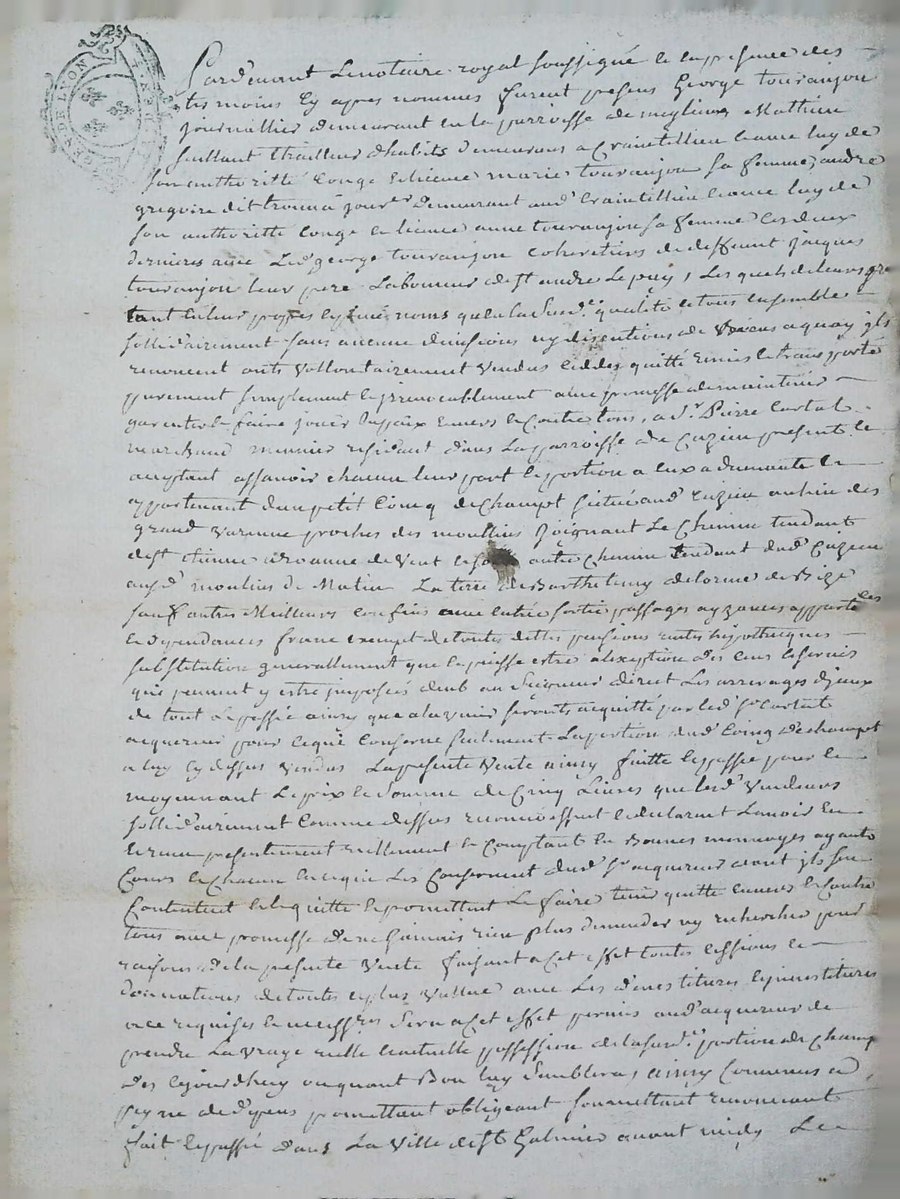 GEN DE LYON
Pardevant Le notaire royal soussigné et en presence des
tesmoins cy apres nommes furent presens George touranjon
journallier demeurant en la parroisse de meylieu, Mathieu
taillant thailleur d'habits demeurans a Craintillieu Lequel luy de
son authoritté Conge et licence marie touranjon sa femme, andre
gregoire dit jour.r Demeurant aud Craintillieu luy de
son authoritte Conge et licence anne touranjon sa femme Lesdeux
dernieres avec Led george touranjon coheretiers de deffunt jacques
touranjon leur pere Laboureur de st andre Le puy, Les quels de leurs gre
tant en leur propres et noms qu'en la susd.e qualité et tous ensemble
sollidairement sans aucune divisions ny discutions de biens a quoy jls
renoncent onts vollontairement vendus ceddes quitté remis et transporté
purement simplement et jrrevocablement avec promesse de maintenir
garentir et faire jouir envers et Contre tous, a s.r Pierre
marchand meunier residant dans La parroisse de Cuzieu present et
acceptant assavoir chacun leur part et portion a eux advenante et
appartenant d'un petit Coing de champt scitué aud Cuzieu au lieu des
grand varenne proches des moullins joignant Le Chemin tendant
de st etienne a roanne de vent et soir autre Chemin tendant dud Cuzieu
auxd moulins de Matin La terre de Barthelemy delorme de Bize
sauf autres Meilleurs confins avec entrée sortie passages ayzances apparte.ces
et dependances franc exempt de toutes dettes pensions rentes hypotheques
substitution generallement que ce puisse estre a l'exeption des cens et servis
qui peuvent y estre jmposées deub au Seigneur direct Les arrerages d'jceux
de tout Le passée ainsy que a lavenir seronts acquitté par led s.r
acquereur pour ce qui Conserne seulement La portion dud Coing de champt
a luy cy dessus vendus La presente vente ainsy faitte et passée pour et
moyennant Le prix et somme de Cinq Livres que lesd vendeurs
sollidairement comme dessus reconnoissent et declarent L'avoir eu
et receu presentement reellement et Comptant en Bonnes monnoyes ayants
Cours et chacun en ce qui Les Consernent dud s.r acquereur dont jls sen
Contentent et le quitte et promettent Le faire tenir quitte envers et Contre
tous avec promesse de ne jamais rien plus demander ny rechercher pour
raisons de la presente vente faisant a cet effet toutes cessions et
donnations de toutes et plus vallue avec Les devestitures et jnvestitures
a ce requises et necess.res Sera a cet effet permis aud acquereur de
prendre La vraye reelle et actuelle possession de lasusd.e portion de champ
des ce jourdhuy ou quant Bon luy Semblera, ainsy Convenus a
peyne de d'pens promettant obligeant soumettant renoncant
fait et passée dans La Ville de st Galmier avant midy Le